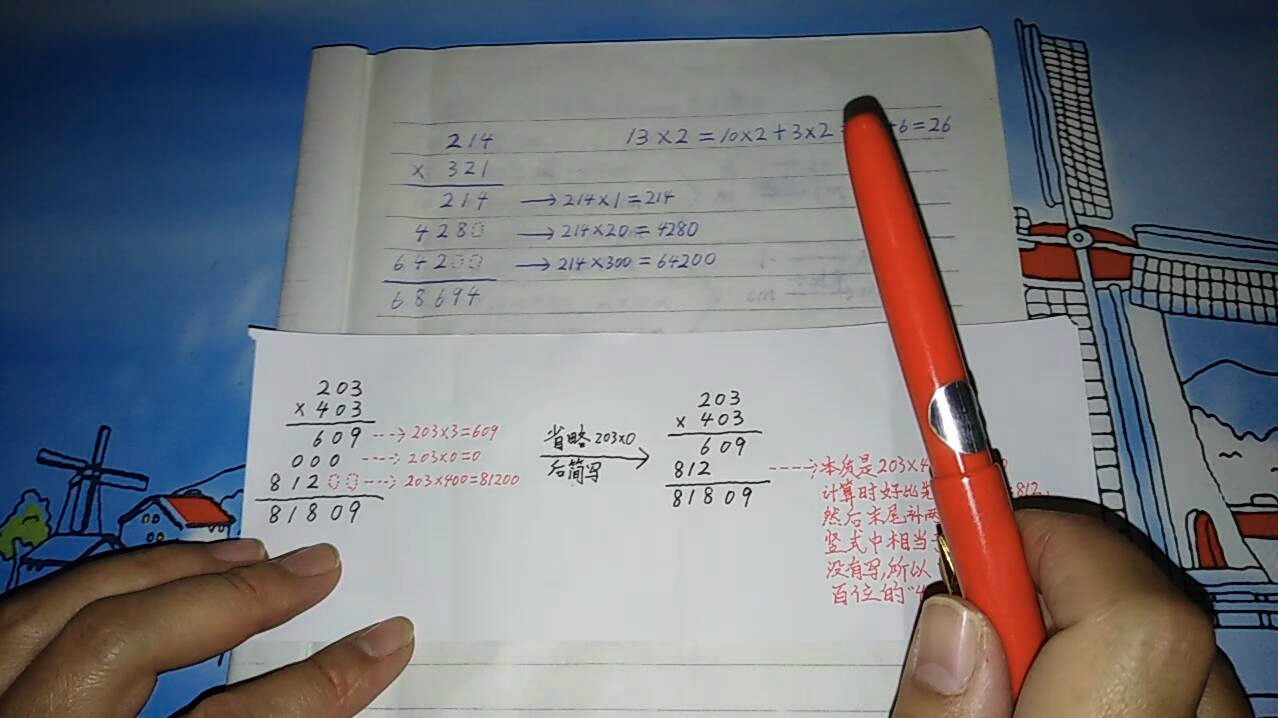 214
× 321
214 → 214×1=214
4280 → 214×20=4280
64200 → 214×300=64200
68694
13×2=10×2+3×2 +6=26
203
× 403
609 ----> 203×3=609
000 ----> 203×0=0
81200 ----> 203×400=81200
81809
省略203×0
后简写
203
× 403
609
812 ----> 本质是203×4
计算时好比 812,
然后末尾补
竖式中相当
没有写,所以
百位的“4
81809